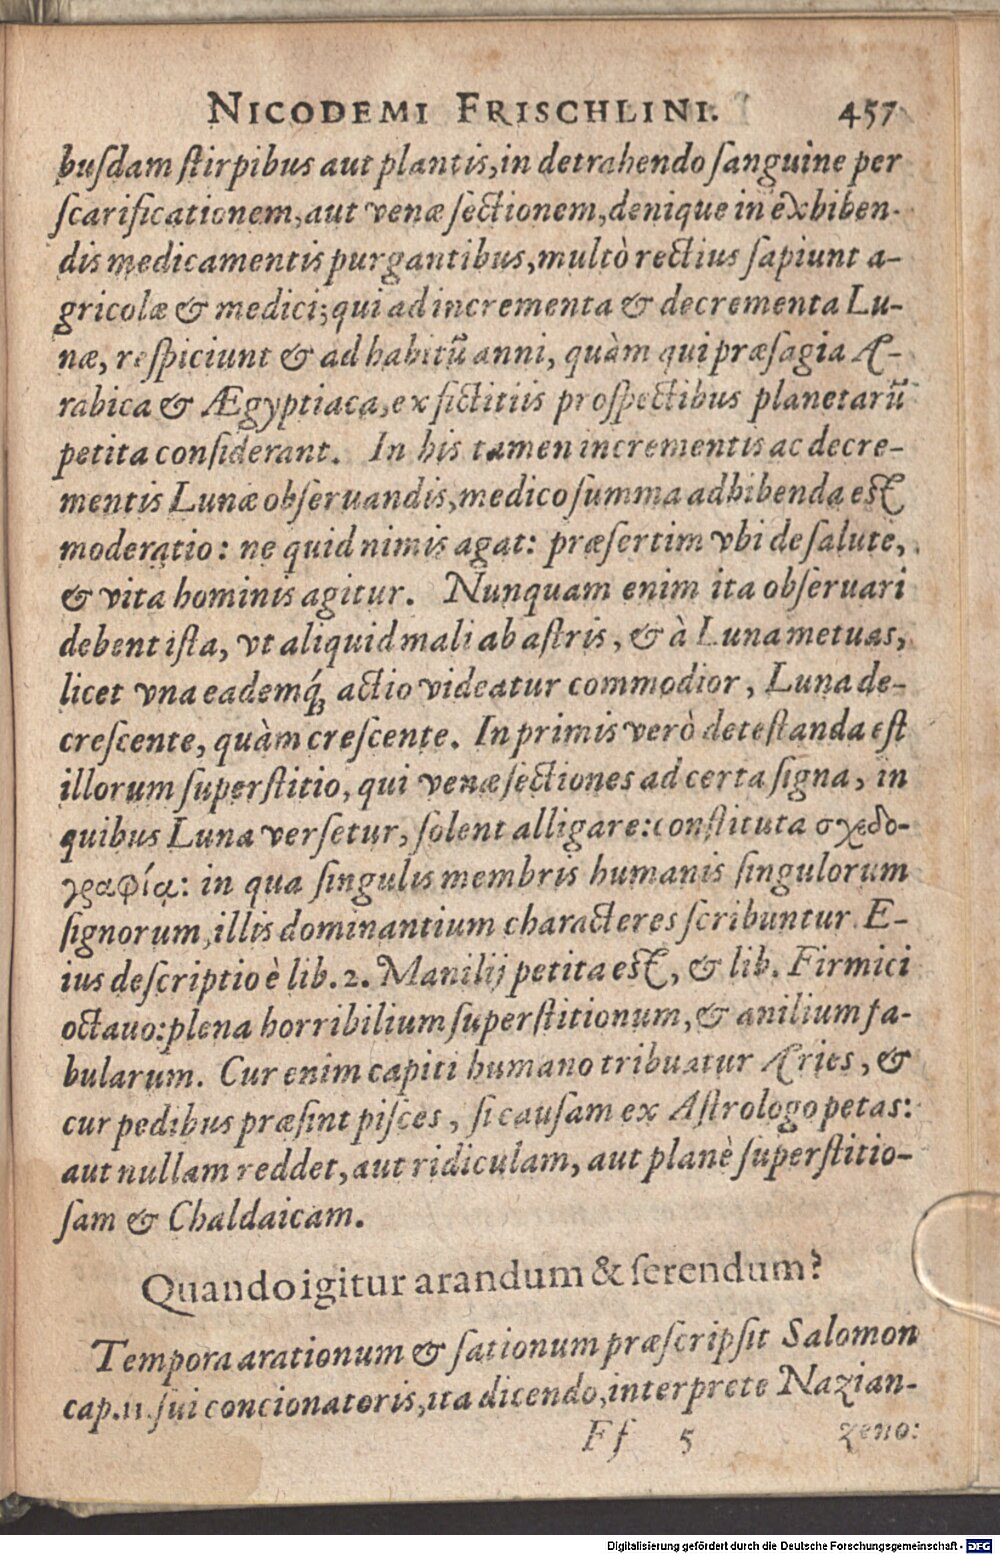 NICODEMI FRISCHLINI. 457
buſdam ſtirpibus aut plantis, in detrahendo ſanguine per
ſcarificationem, aut venæ ſectionem, denique in exhiben-
dis medicamentis purgantibus, multò rectius ſapiunt a-
gricolæ & medici; qui ad incrementa & decrementa Lu-
næ, reſpiciunt & ad habitũ anni, quàm qui præſagia A-
rabica & Ægyptiaca, ex fictitiis proſpectibus planetarũ
petita conſiderant. In his tamen incrementis ac decre-
mentis Lunæ obſeruandis, medico ſumma adhibenda eſt
moderatio: ne quid nimis agat: præſertim vbi de ſalute,
& vita hominis agitur. Nunquam enim ita obſeruari
debent iſta, vt aliquid mali ab aſtris, & à Luna metuas,
licet vna eademq́; actio videatur commodior, Luna de-
creſcente, quàm creſcente. In primis verò deteſtanda eſt
illorum ſuperſtitio, qui venæ ſectiones ad certa ſigna, in
quibus Luna verſetur, ſolent alligare: conſtituta σχεδο-
γραφίᾳ: in qua ſingulis membris humanis ſingulorum
ſignorum, illis dominantium characteres ſcribuntur. E-
ius deſcriptio è lib. 2. Manilij petita eſt, & lib. Firmici
octauo: plena horribilium ſuperſtitionum, & anilium fa-
bularum. Cur enim capiti humano tribuatur Aries, &
cur pedibus præſint piſces, ſi cauſam ex Aſtrologo petas:
aut nullam reddet, aut ridiculam, aut planè ſuperſtitio-
ſam & Chaldaicam.
Quando igitur arandum & ſerendum?
Tempora arationum & ſationum præſcripſit Salomon
cap. 11. ſui concionatoris, ita dicendo, interprete Nazian-
Ff 5 zeno:
Digitalisierung gefördert durch die Deutsche Forschungsgemeinschaft - DFG